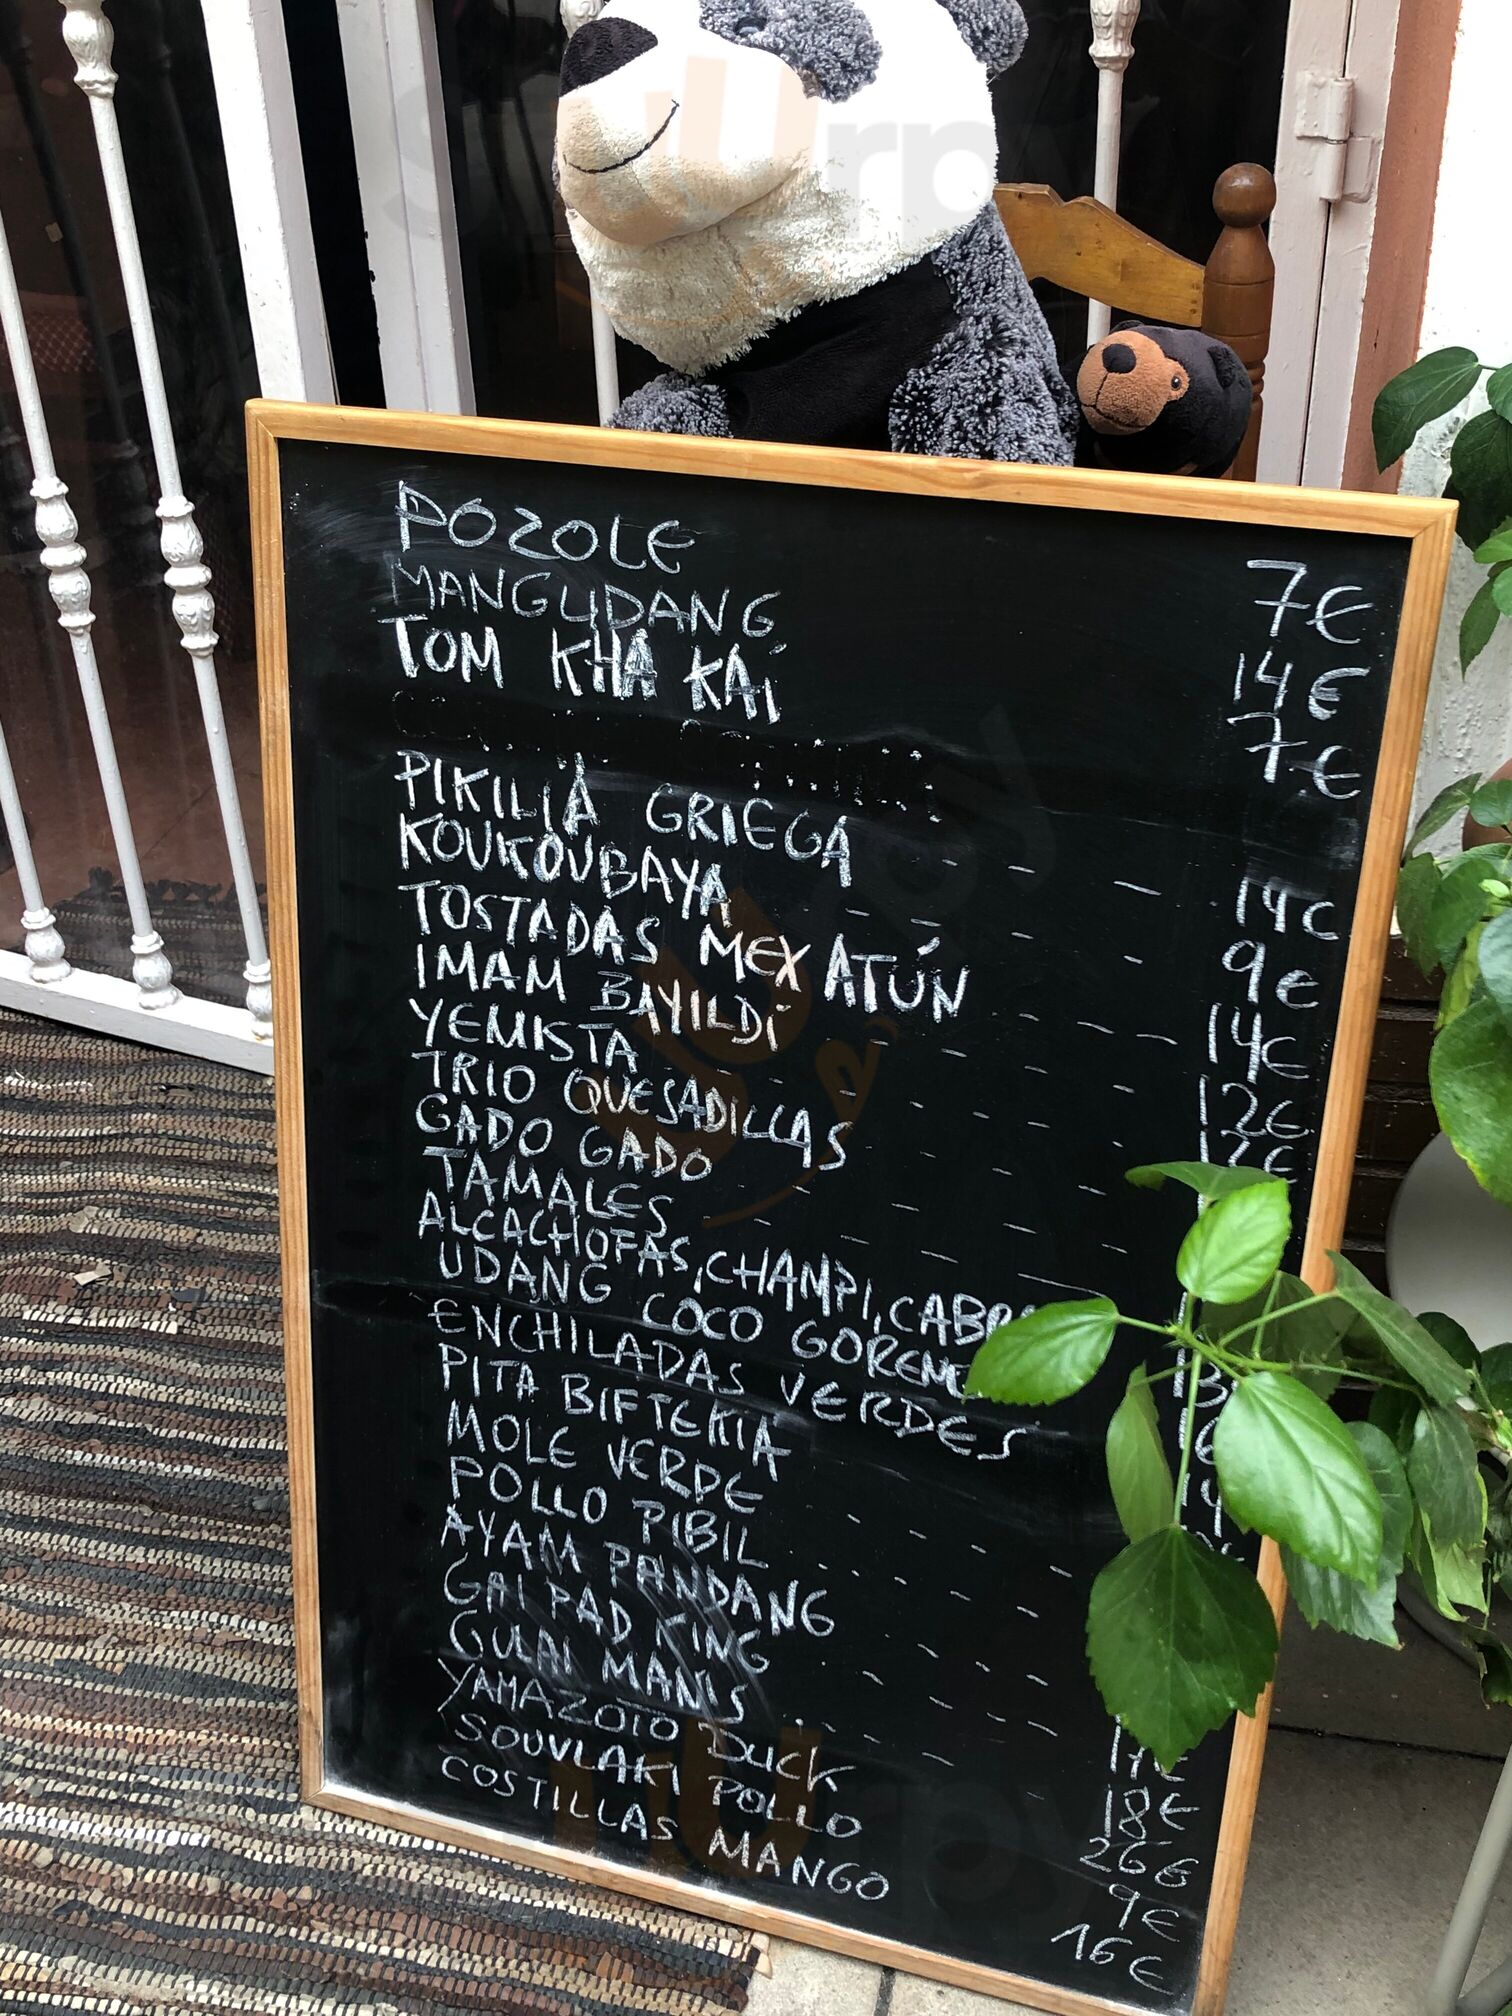 POZOLE 7€
MANGUDANG 14€
TOM KHA KAI 7€
PIKILIA GRIEGA - - - 14€
KOUKOUBAYA - - - - 9€
TOSTADAS MEX ATÚN - - - 14€
IMAM BAYILDI - - - - 12€
YEMISTA - - - - - 12€
TRIO QUESADILLAS
GADO GADO - - - -
TAMALES - - - - -
ALCACHOFAS, CHAMPI, CABR
UDANG COCO GORENG
ENCHILADAS VERDES
PITA BIFTEKIA
MOLE VERDE - - - -
POLLO PIBIL - - - -
AYAM PANDANG - - -
GAI PAD KING - - - -
GULAI MANIS - - - - 17€
YAMAZOTO DUCK 18€
SOUVLAKI POLLO 26€
COSTILLAS MANGO 9€
16€